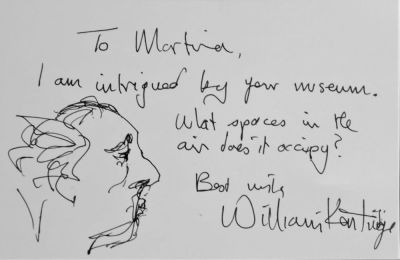 To Martina,
I am intrigued by your museum.
What spaces in the
air does it occupy?
Best wishes
William Kentridge